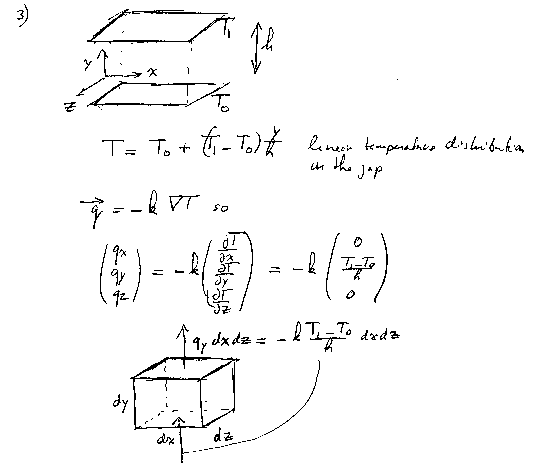 3)
T₁
h
y
x
z
T₀
T = T₀ + (T₁ - T₀) y/h linear temperature distribution
in the gap
q⃗ = -k ∇T so
(qx qy qz) = -k (∂T/∂x ∂T/∂y ∂T/∂z) = -k (0 (T₁-T₀)/h 0)
qy dxdz = -k (T₁-T₀)/h dxdz
dy
dx
dz